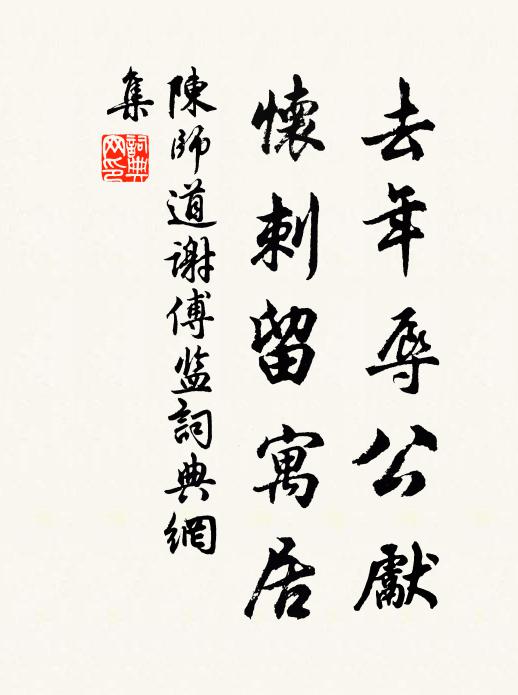 去年辱公獻
懷刺留寓居
陳師道謝傅監詞典網
集
詞典
网印